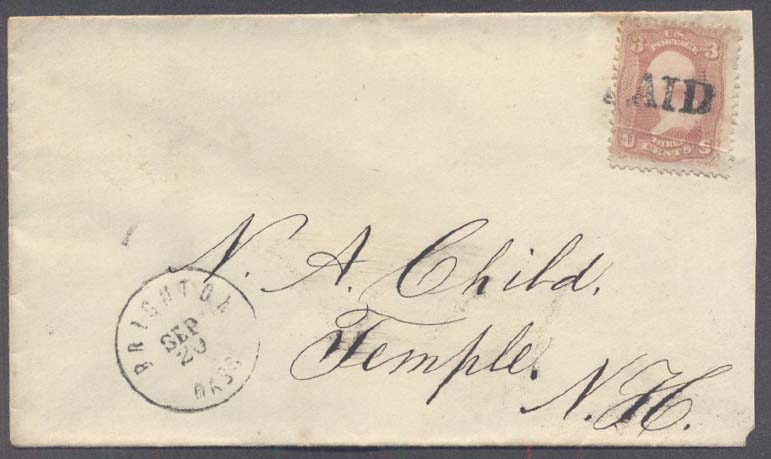 3 U.S. 3
POSTAGE
PAID
U S
THREE
CENTS
N. A. Child.
Temple.
N.H.
BRIGHTON
SEP
29
MASS